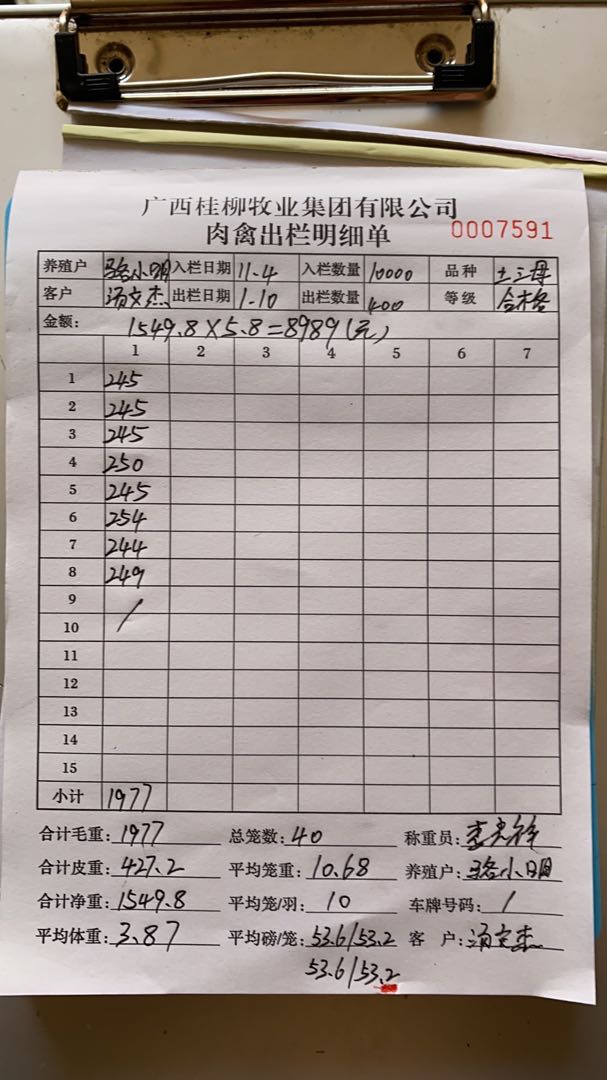 广西桂柳牧业集团有限公司
肉禽出栏明细单 0007591
养殖户 骆小明 入栏日期 11.4 入栏数量 10000 品种 土三母
客户 汤文杰 出栏日期 1-10 出栏数量 400 等级 合格
金额: 1549.8×5.8=8989(元)
1 2 3 4 5 6 7
1 245
2 245
3 245
4 250
5 245
6 254
7 244
8 249
9 /
10
11
12
13
14
15
小计 1977
合计毛重: 1977 总笼数: 40 称重员:
合计皮重: 427.2 平均笼重: 10.68 养殖户: 骆小明
合计净重: 1549.8 平均笼/羽: 10 车牌号码: /
平均体重: 3.87 平均磅/笼: 53.6/53.2 客 户: 汤文杰
53.6/53.2